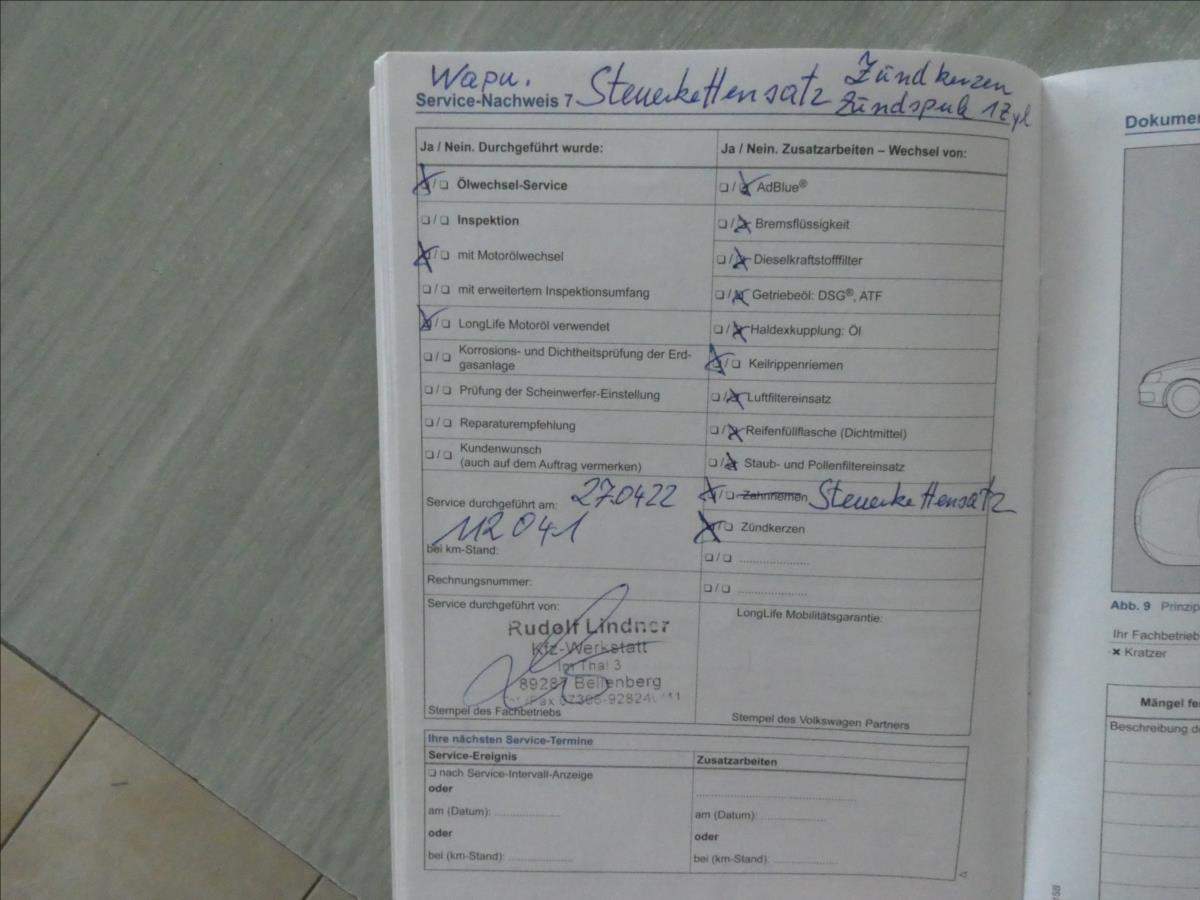 Wapu. Steuerkettensatz Zündkerzen
Service-Nachweis 7 Zündspule 1Zyl
Ja / Nein. Durchgeführt wurde:
❑ / ❑ Ölwechsel-Service
❑ / ❑ Inspektion
❑ / ❑ mit Motorölwechsel
❑ / ❑ mit erweitertem Inspektionsumfang
❑ / ❑ LongLife Motoröl verwendet
❑ / ❑ Korrosions- und Dichtheitsprüfung der Erd-
gasanlage
❑ / ❑ Prüfung der Scheinwerfer-Einstellung
❑ / ❑ Reparaturempfehlung
❑ / ❑ Kundenwunsch
(auch auf dem Auftrag vermerken)
Service durchgeführt am: 270422
112041
bei km-Stand:
Rechnungsnummer:
Service durchgeführt von:
Rudolf Lindner
Kfz-Werkstatt
Im Thal 3
89287 Bellenberg
Stempel des Fachbetriebs
Ja / Nein. Zusatzarbeiten – Wechsel von:
❑ / ❑ AdBlue®
❑ / ❑ Bremsflüssigkeit
❑ / ❑ Dieselkraftstofffilter
❑ / ❑ Getriebeöl: DSG®, ATF
❑ / ❑ Haldexkupplung: Öl
❑ / ❑ Keilrippenriemen
❑ / ❑ Luftfiltereinsatz
❑ / ❑ Reifenfüllflasche (Dichtmittel)
❑ / ❑ Staub- und Pollenfiltereinsatz
❑ / ❑ Zahnriemen Steuerkettensatz
❑ / ❑ Zündkerzen
❑ / ❑ ....................
❑ / ❑ ....................
LongLife Mobilitätsgarantie:
Stempel des Volkswagen Partners
Ihre nächsten Service-Termine
Service-Ereignis
❑ nach Service-Intervall-Anzeige
oder
am (Datum): ...................
oder
bei (km-Stand): ...................
Zusatzarbeiten
................................................
am (Datum): ...................
oder
bei (km-Stand): ...................
Dokumen
Abb. 9 Prinzip
Ihr Fachbetrieb
✖ Kratzer
Mängel fe
Beschreibung d